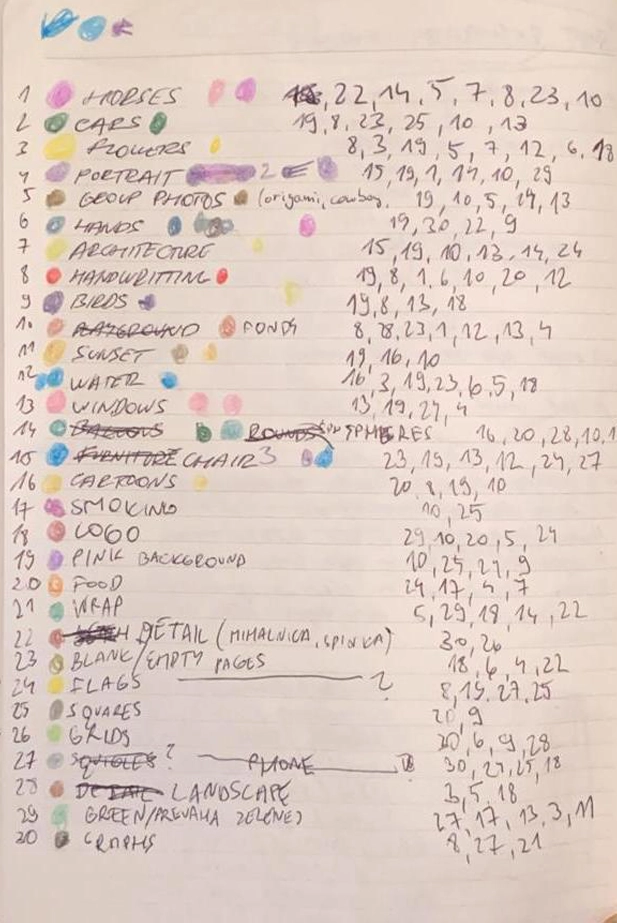 1 HORSES 22, 14, 5, 7, 8, 23, 10
2 CARS 19, 8, 23, 25, 10, 13
3 FLOWERS 8, 3, 19, 5, 7, 12, 6, 18
4 PORTRAIT 2 15, 19, 1, 14, 10, 29
5 GROUP PHOTOS (origami, cowboy, 19, 10, 5, 24, 13
6 HANDS 19, 30, 22, 9
7 ARCHITECTURE 15, 19, 10, 13, 14, 24
8 HANDWRITTING 19, 8, 1, 6, 10, 20, 12
9 BIRDS 19, 8, 13, 18
10 FONDS 8, 28, 23, 1, 12, 13, 4
11 SUNSET 19, 16, 10
12 WATER 16, 3, 19, 23, 6, 5, 18
13 WINDOWS 13, 19, 24, 4
14 BALLOONS ROUNDS SPHERES 16, 20, 28, 10, 1
15 FURNITURE CHAIR 3 23, 19, 13, 12, 24, 27
16 CARTOONS 20, 8, 19, 10
17 SMOKING 10, 25
18 LOGO 29, 10, 20, 5, 24
19 PINK BACKGROUND 10, 25, 21, 9
20 FOOD 24, 17, 4, 7
21 WRAP 5, 29, 18, 14, 22
22 DETAIL (MIHALNICA, SPINKA) 30, 26
23 BLANK/EMPTY PAGES 18, 6, 4, 22
24 FLAGS ? 8, 15, 27, 25
25 SQUARES 20, 9
26 GRIDS 30, 6, 9, 28
27 SQUIGLES ? PHONE 30, 27, 25, 18
28 DETAIL LANDSCAPE 3, 5, 18
29 GREEN/PREVAHA ZELENEJ 27, 17, 13, 3, 11
30 GRAPHS 8, 27, 21